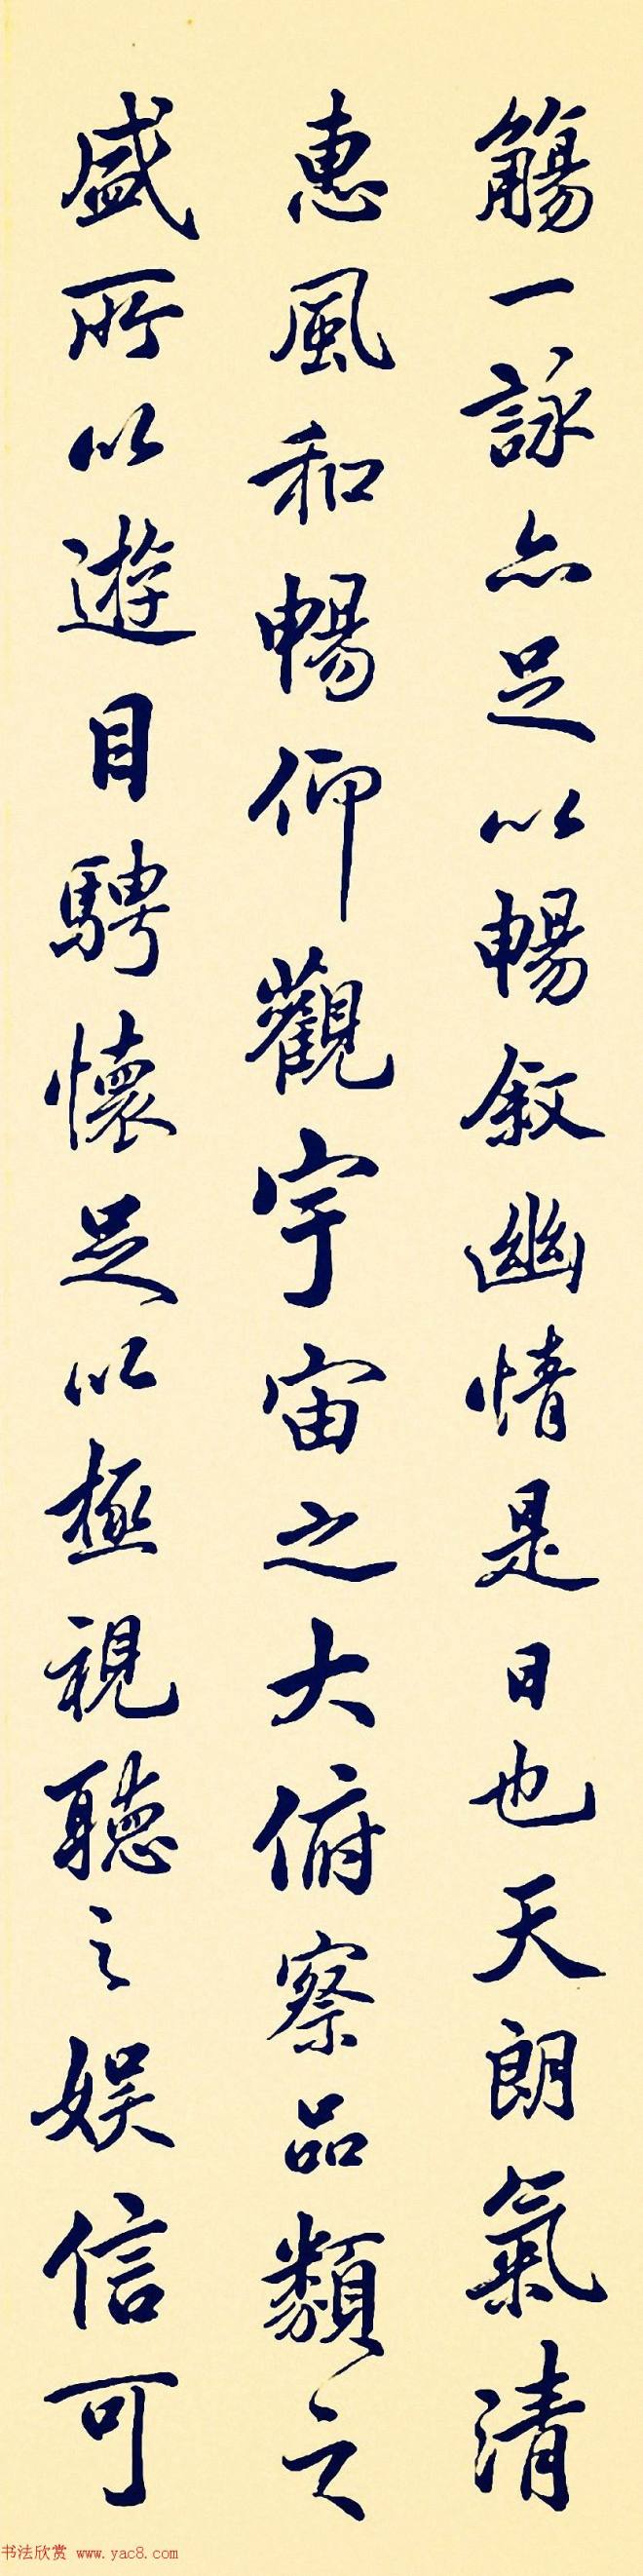 觴一詠亦足以暢叙幽情是日也天朗氣清
惠風和暢仰觀宇宙之大俯察品類之
盛所以遊目騁懷足以極視聽之娱信可
书法欣赏 www.yac8.com